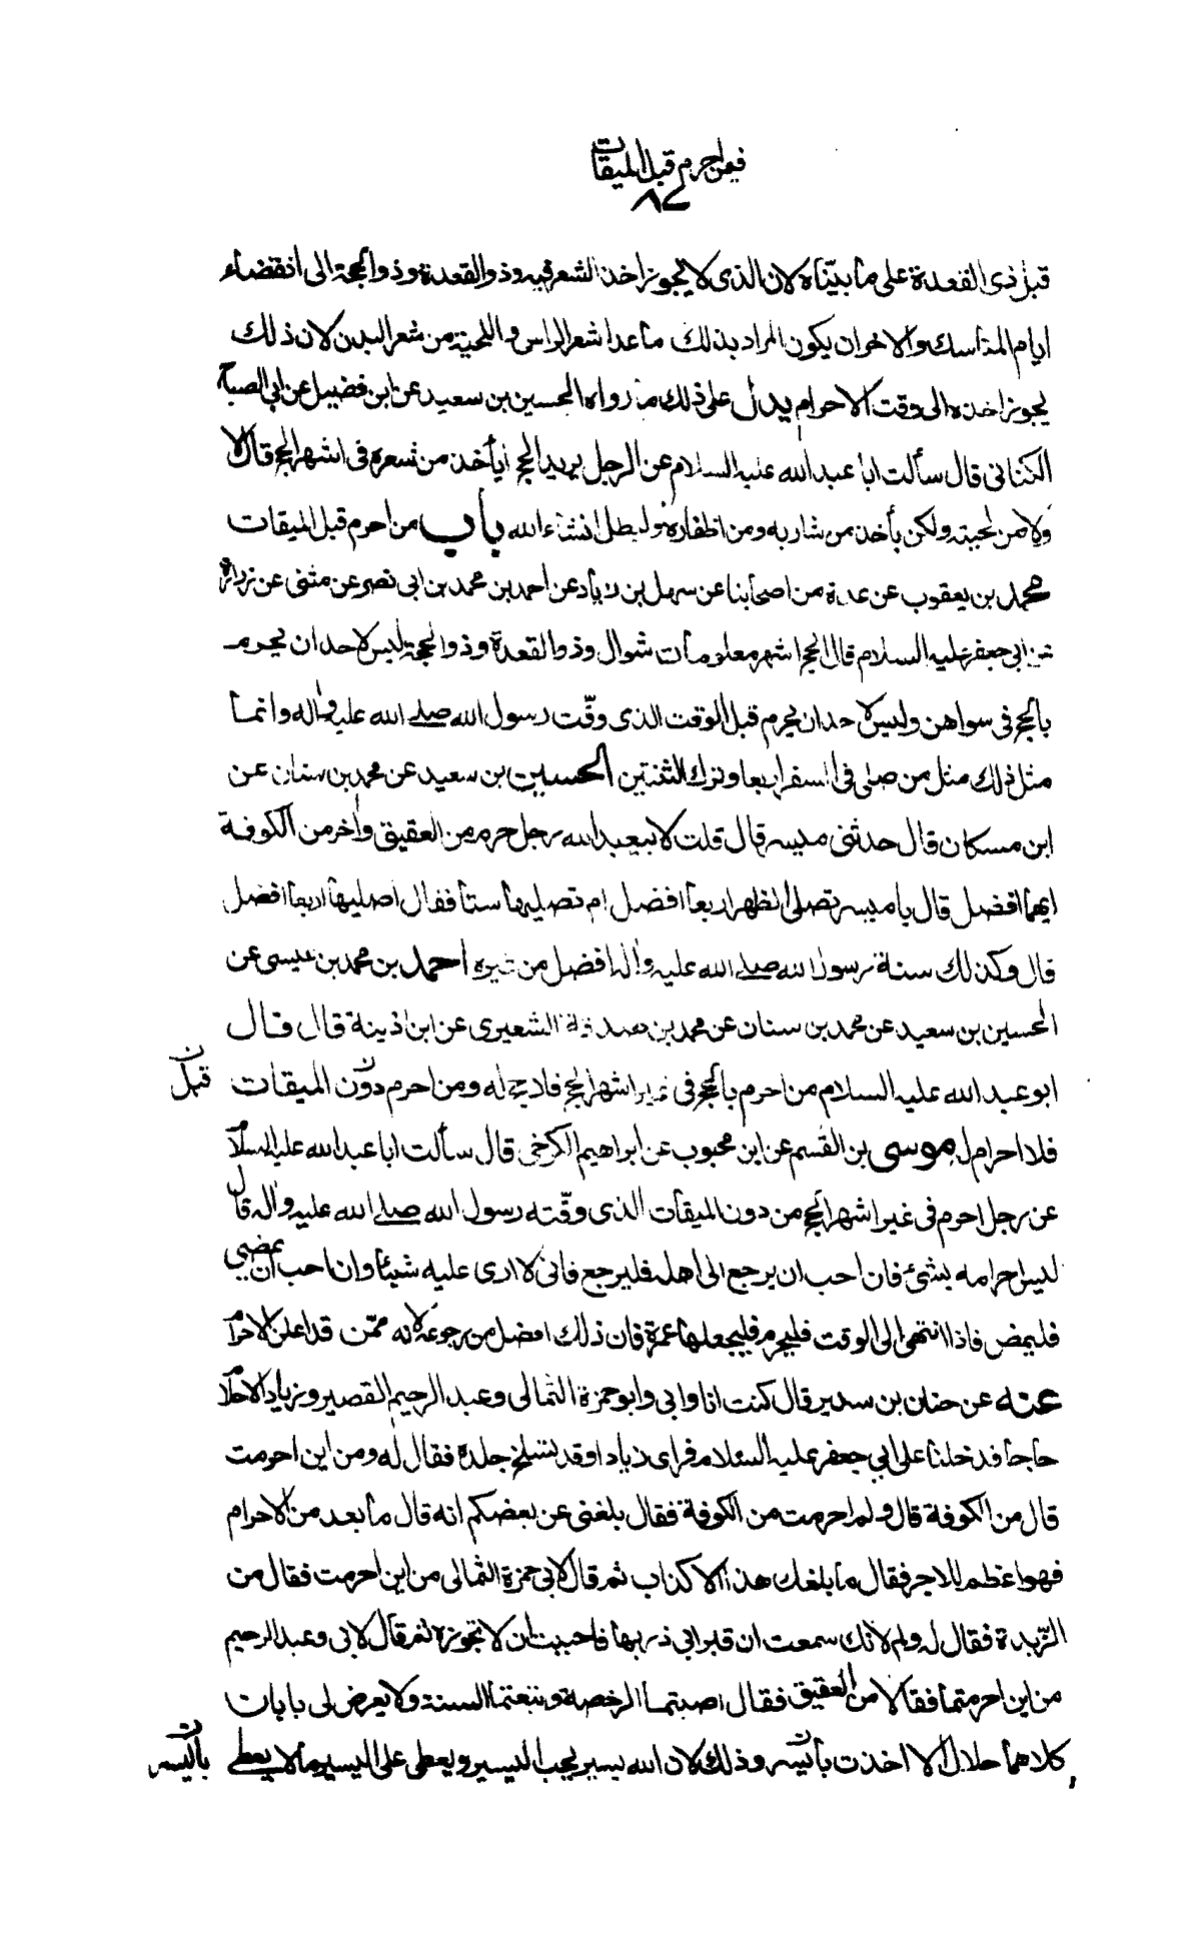 فيمن احرم قبل الميقات
٨٧
قبل ذى القعدة على ما بيّناه لان الذى لا يجوز اخذ الشعر فيه وذو القعدة وذو الحجة الى انقضاء
ايام المناسك والاخر ان يكون المراد بذلك ما عدا شعر الراس واللحية من شعر البدن لان ذلك
يجوز اخذه الى وقت الاحرام يدل على ذلك ما رواه الحسين بن سعيد عن ابن فضيل عن ابى الصباح
الكنانى قال سألت ابا عبد الله عليه السلام عن الرجل يريد الحج أيأخذ من شعره فى اشهر الحج قال لا
ولا من لحيته ولكن يأخذ من شاربه ومن اظفاره وليطل انشاء الله باب من احرم قبل الميقات
محمد بن يعقوب عن عدة من اصحابنا عن سهل بن زياد عن احمد بن محمد بن ابى نصر عن مثنى عن زرارة
عن ابى جعفر عليه السلام قال الحج اشهر معلومات شوال وذو القعدة وذو الحجة ليس لاحد ان يحرم
بالحج فى سواهن وليس لاحد ان يحرم قبل الوقت الذى وقّت رسول الله صلى الله عليه واله وانما
مثل ذلك مثل من صلى فى السفر اربعا وترك الثنتين الحسين بن سعيد عن محمد بن سنان عن
ابن مسكان قال حدثنى ميسر قال قلت لابيعبد الله رجل احرم من العقيق واخر من الكوفة
ايهما افضل قال يا ميسر تصلى الظهر اربعا افضل ام تصليها ستا فقال اصليها اربعا افضل
قال وكذلك سنة رسول الله صلى الله عليه واله افضل من غيره احمد بن محمد بن عيسى عن
الحسين بن سعيد عن محمد بن سنان عن محمد بن صدقة الشعيرى عن ابن اذينة قال قال
ابو عبد الله عليه السلام من احرم بالحج فى غير اشهر الحج فلا حج له ومن احرم دون الميقات قبل ن
فلا احرام له موسى بن القسم عن ابن محبوب عن ابراهيم الكرخى قال سألت ابا عبد الله عليه السلام
عن رجل احرم فى غير اشهر الحج من دون الميقات الذى وقّته رسول الله صلى الله عليه واله قال
ليس احرامه بشئ فان احب ان يرجع الى اهله فليرجع فانى لا ارى عليه شيئا وان احب ان يمضى
فليمض فاذا انتهى الى الوقت فليحرم فليجعلها عمرة فان ذلك افضل من رجوعه لانه ممّن قد اعلن الاحرام
عنه عن حنان بن سدير قال كنت انا وابى وابو حمزة الثمالى وعبد الرحيم القصير وزياد الاحلام
حاجا فدخلنا على ابى جعفر عليه السلام فراى زيادا وقد تسلخ جلده فقال له ومن اين احرمت
قال من الكوفة قال ولم احرمت من الكوفة فقال بلغنى عن بعضكم انه قال ما بعد من الاحرام
فهو اعظم للاجر فقال ما بلغك هذا الا كذاب ثم قال لابى حمزة الثمالى من اين احرمت فقال من
الرّبذة فقال له ولم لانك سمعت ان قبر ابى ذر بها فاحببت ان لا تجوزه ثم قال لابى وعبد الرحيم
من اين احرمتما فقالا من العقيق فقال اصبتما الرخصة واتبعتما السنة ولا يعرض لى بابان
كلاهما حلال الا اخذت باليسير وذلك لان الله يسير يحب اليسير ويعطى على اليسير ما لا يعطى باليسر ن